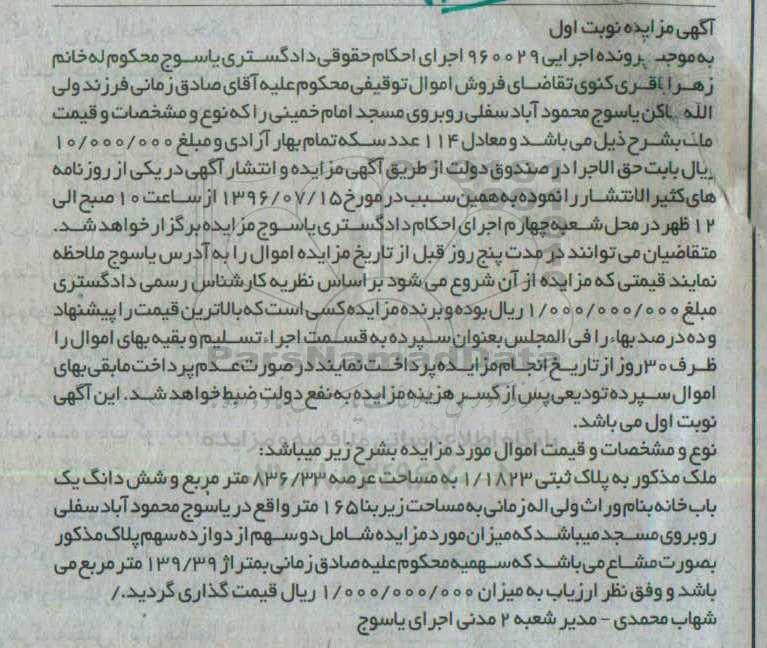 آگهی مزایده نوبت اول
به موجب پرونده اجرایی ۹۶۰۰۲۹ اجرای احکام حقوقی دادگستری یاسوج محکوم له خانم
زهرا باقری کنوی تقاضای فروش اموال توقیفی محکوم علیه آقای صادق زمانی فرزند ولی
الله ساکن یاسوج محمود آباد سفلی روبروی مسجد امام خمینی را که نوع و مشخصات و قیمت
مال بشرح ذیل می باشد و معادل ۱۱۴ عدد سکه تمام بهار آزادی و مبلغ ۱۰/۰۰۰/۰۰۰
ریال بابت حق الاجرا در صندوق دولت از طریق آگهی مزایده و انتشار آگهی در یکی از روزنامه
های کثیر الانتشار را نموده به همین سبب در مورخ ۱۳۹۶/۰۷/۱۵ از ساعت ۱۰ صبح الی
۱۲ ظهر در محل شعبه چهارم اجرای احکام دادگستری یاسوج مزایده برگزار خواهد شد.
متقاضیان می توانند در مدت پنج روز قبل از تاریخ مزایده اموال را به آدرس یاسوج ملاحظه
نمایند قیمتی که مزایده از آن شروع می شود بر اساس نظریه کارشناس رسمی دادگستری
مبلغ ۱/۰۰۰/۰۰۰/۰۰۰ ریال بوده و برنده مزایده کسی است که بالاترین قیمت را پیشنهاد
و ده درصد بهاء را فی المجلس بعنوان سپرده به قسمت اجراء تسلیم و بقیه بهای اموال را
ظرف ۳۰ روز از تاریخ انجام مزایده پرداخت نمایند در صورت عدم پرداخت مابقی بهای
اموال سپرده تودیعی پس از کسر هزینه مزایده به نفع دولت ضبط خواهد شد. این آگهی
نوبت اول می باشد.
نوع و مشخصات و قیمت اموال مورد مزایده بشرح زیر میباشد:
ملک مذکور به پلاک ثبتی ۱/۱۸۲۳ به مساحت عرصه ۸۳۶/۳۳ متر مربع و شش دانگ یک
باب خانه بنام وراث ولی اله زمانی به مساحت زیر بنا ۱۶۵ متر واقع در یاسوج محمود آباد سفلی
روبروی مسجد میباشد که میزان مورد مزایده شامل دو سهم از دوازده سهم پلاک مذکور
بصورت مشاع می باشد که سهمیه محکوم علیه صادق زمانی بمتراژ ۱۳۹/۳۹ متر مربع می
باشد و وفق نظر ارزیاب به میزان ۱/۰۰۰/۰۰۰/۰۰۰ ریال قیمت گذاری گردید./
شهاب محمدی - مدیر شعبه ۲ مدنی اجرای یاسوج
ParsNamadData